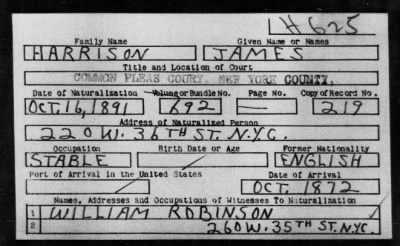 H625
Family Name Given Name or Names
HARRISON JAMES
Title and Location of Court
COMMON PLEAS COURT, NEW YORK COUNTY.
Date of Naturalization Volume or Bundle No. Page No. Copy of Record No.
OCT. 16, 1891 692 — 219
Address of Naturalized Person
220 W. 36TH ST. N.Y.C.
Occupation Birth Date or Age Former Nationality
STABLE ENGLISH
Port of Arrival in the United States Date of Arrival
OCT. 1872
Names, Addresses and Occupations of Witnesses To Naturalization
1 WILLIAM ROBINSON
2 260 W. 35TH ST. N.Y.C.